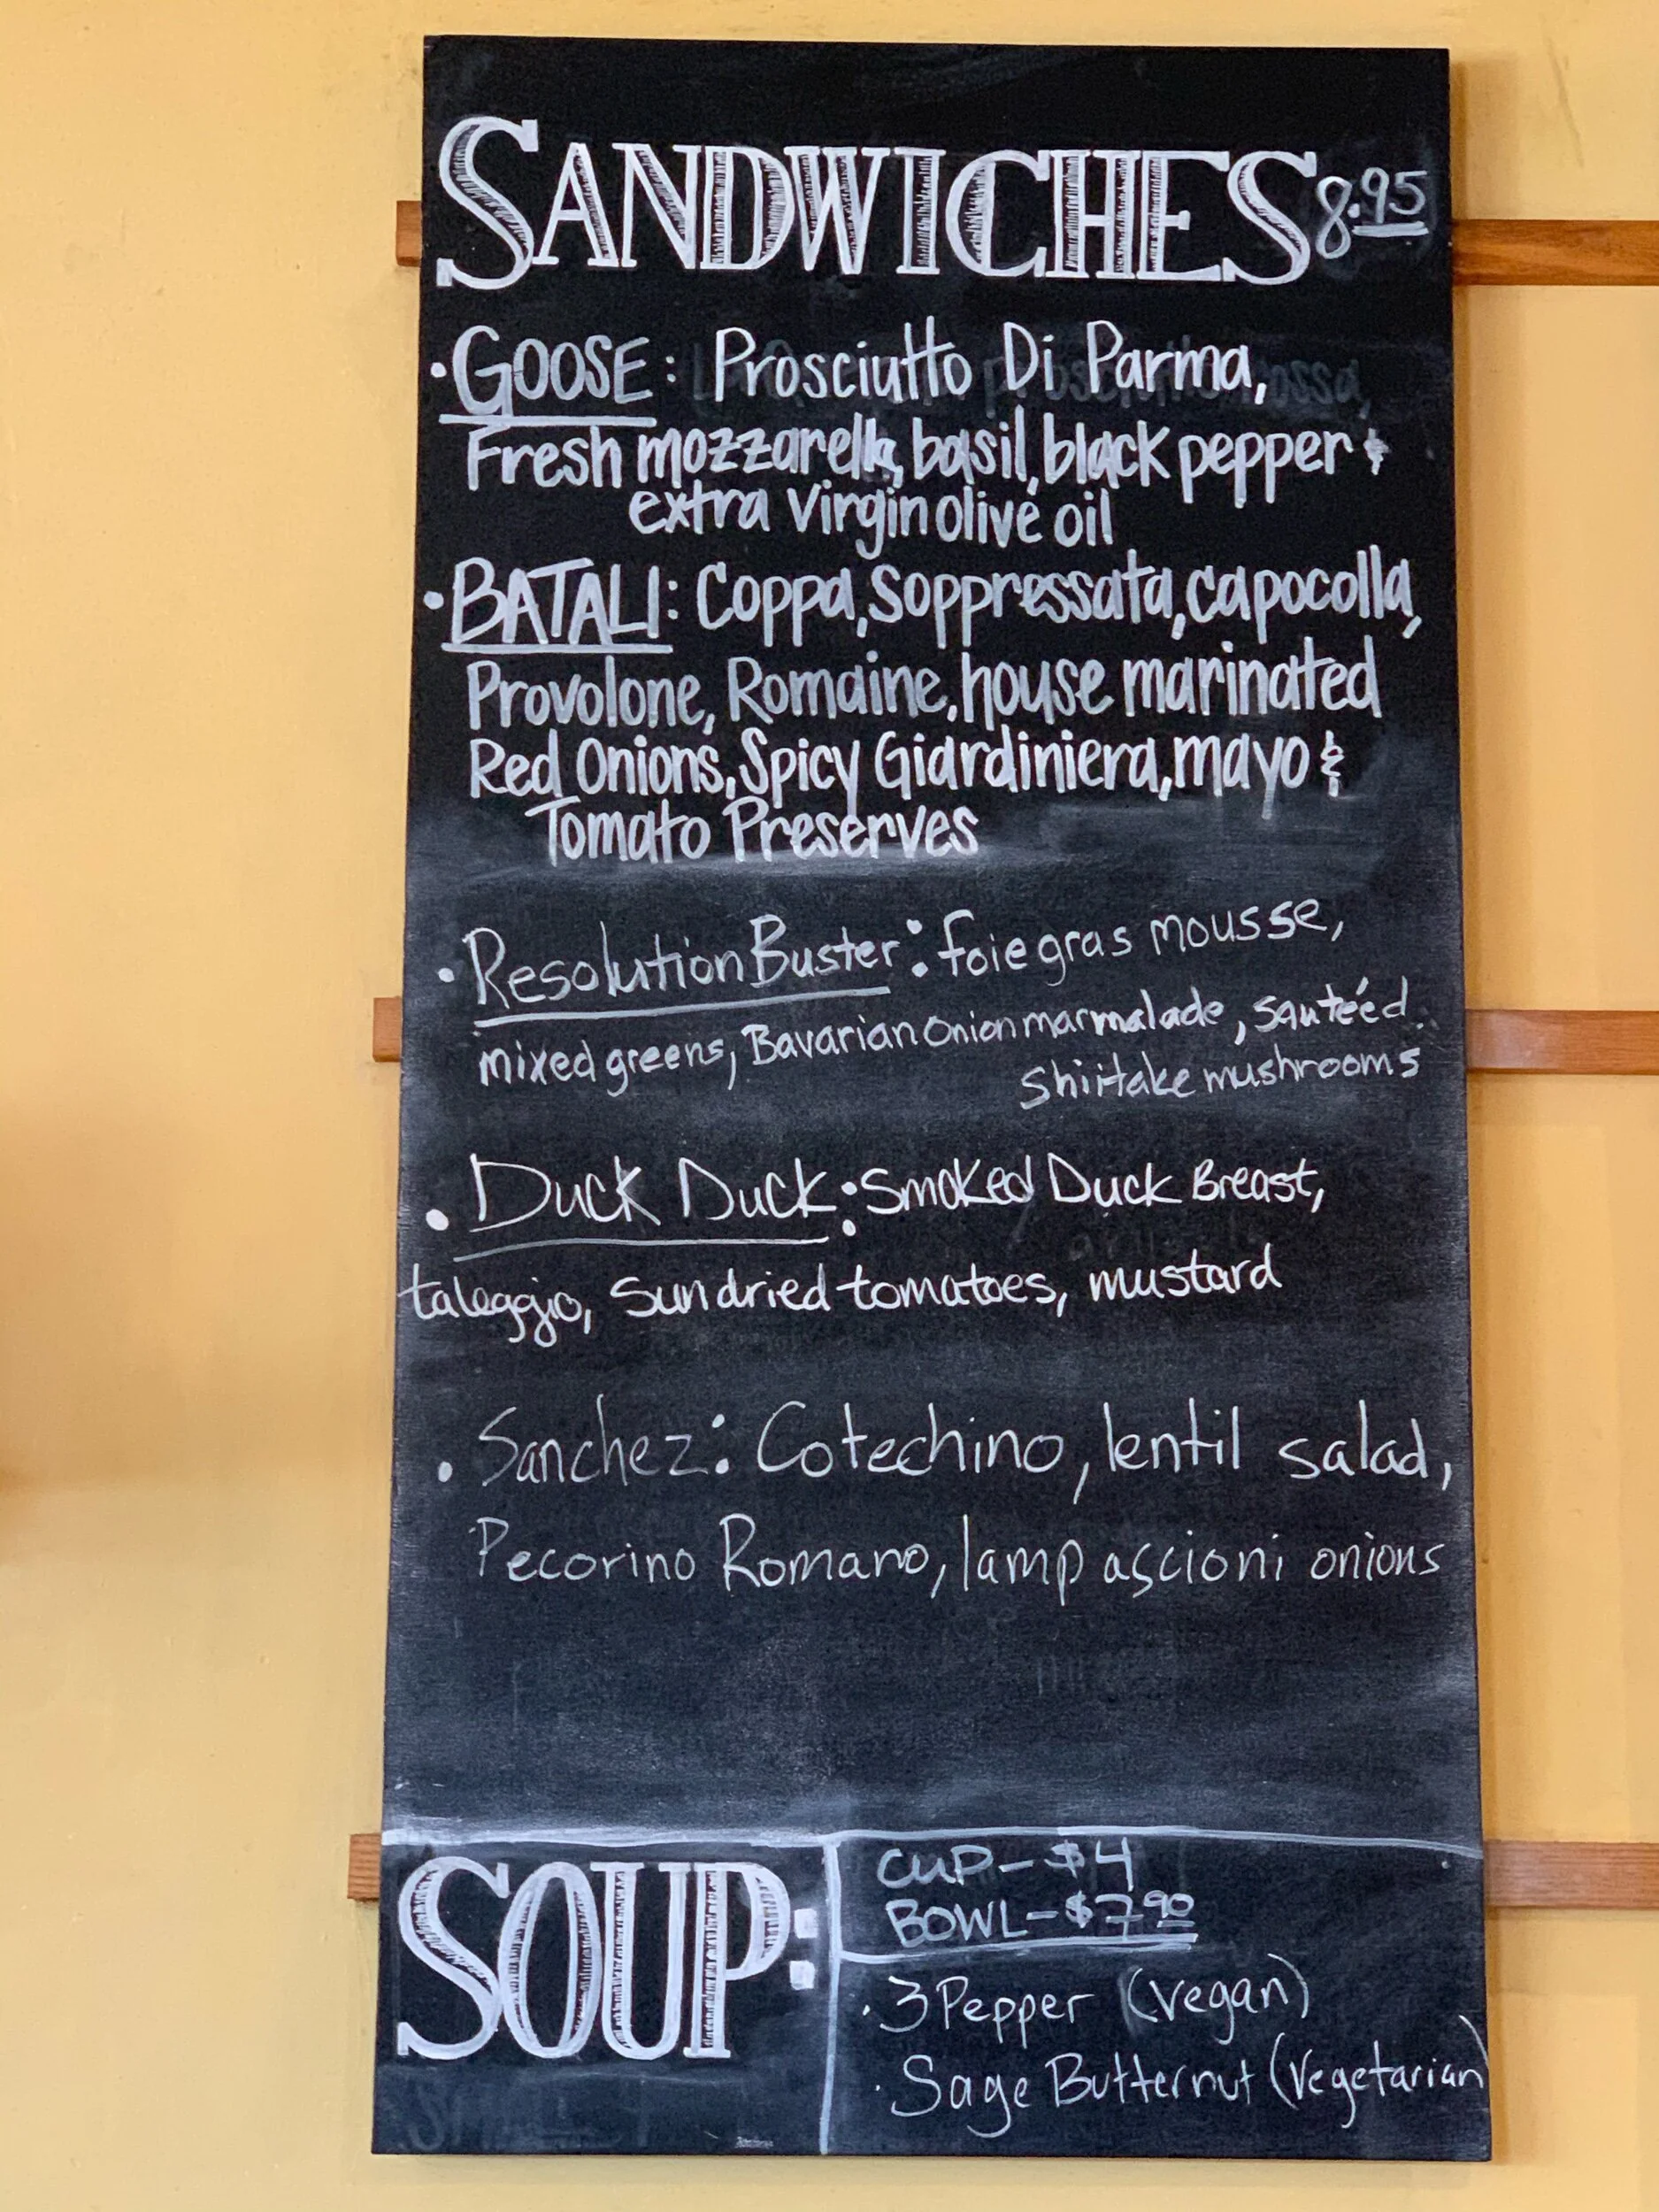 SANDWICHES 8.95
• GOOSE: Prosciutto Di Parma,
Fresh mozzarella, basil, black pepper &
extra virgin olive oil
• BATALI: Coppa, Soppressata, capocolla,
Provolone, Romaine, house marinated
Red Onions, Spicy Giardiniera, mayo &
Tomato Preserves
• Resolution Buster: foie gras mousse,
mixed greens, Bavarian Onion marmalade, sautéed
shiitake mushrooms
• Duck Duck: Smoked Duck Breast,
taleggio, sundried tomatoes, mustard
• Sanchez: Cotechino, lentil salad,
Pecorino Romano, lampascioni onions
SOUP:
CUP - $4
BOWL - $7.90
• 3 Pepper (vegan)
• Sage Butternut (Vegetarian)